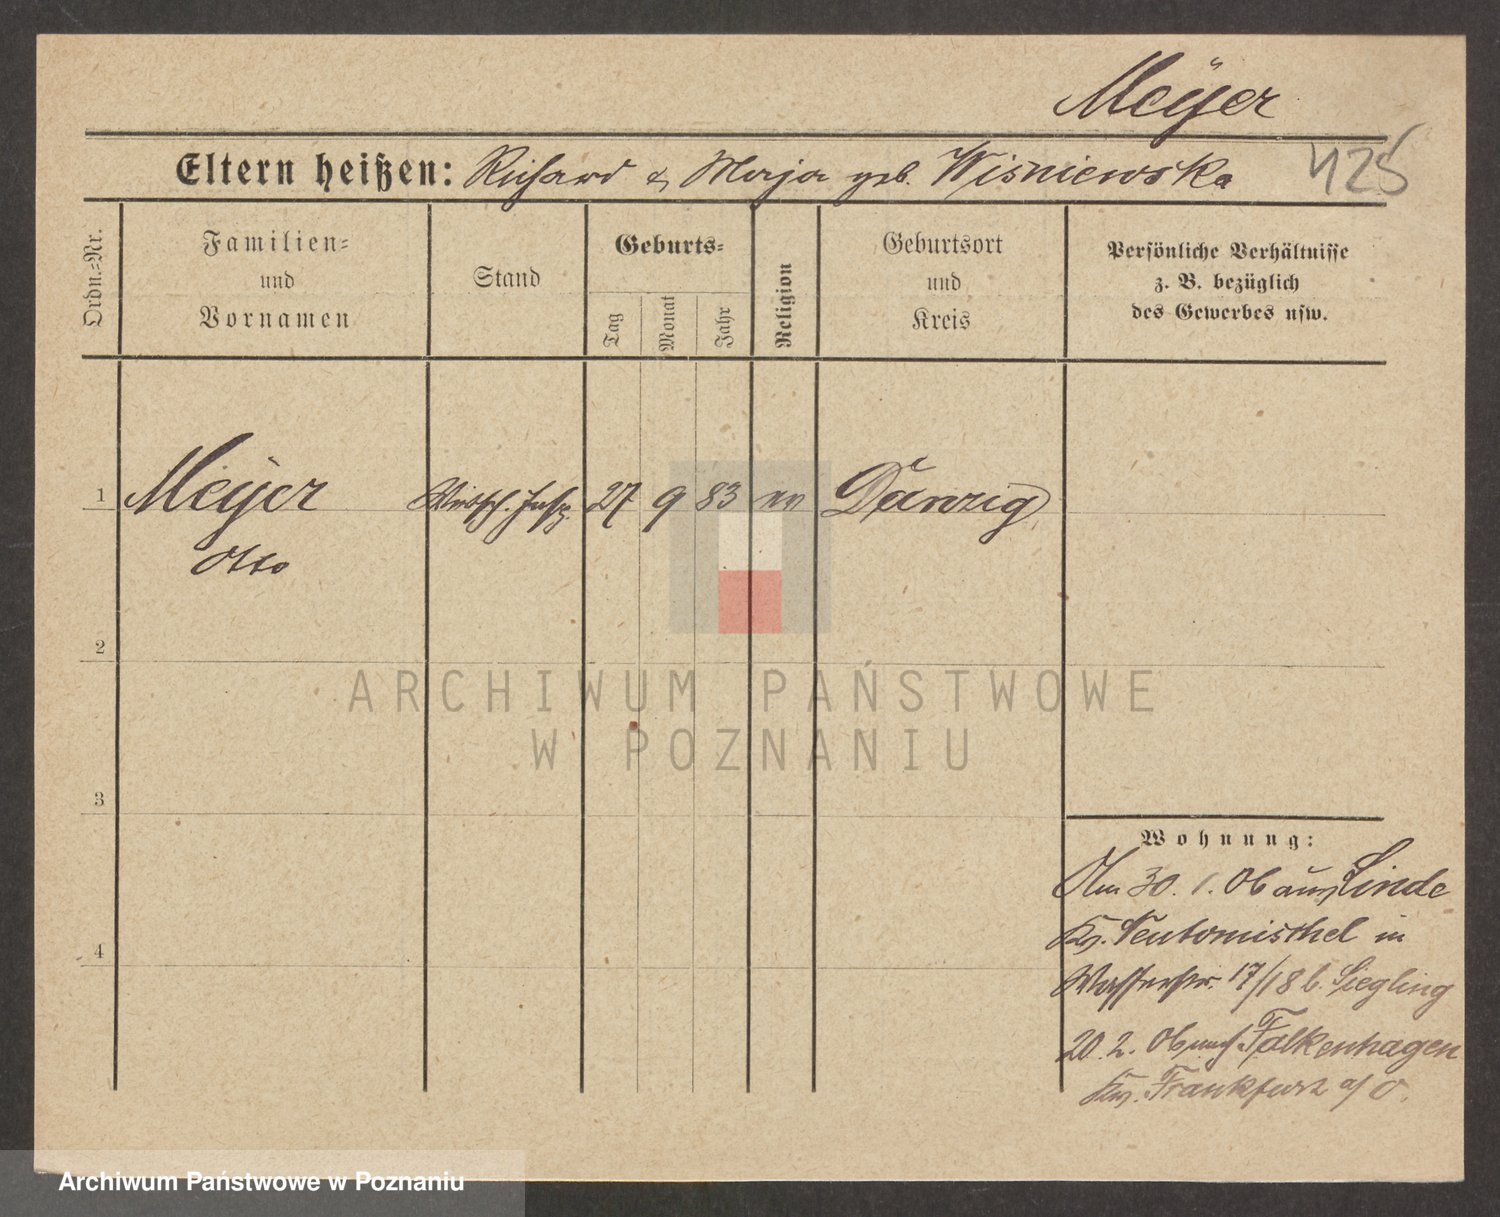 Meÿer
Eltern heißen: Richard & Marja geb. Wisniewska
425
Ordn.-Nr.
Familien-
und
Vornamen
Stand
Geburts-
Tag
Monat
Jahr
Religion
Geburtsort
und
Kreis
Persönliche Verhältnisse
z. B. bezüglich
des Gewerbes usw.
1 Meÿer Wirtsch. Insp. 27 9 83 Danzig
Otto
2
3
4
ARCHIWUM PAŃSTWOWE
W POZNANIU
Wohnung:
Am 30. 1. 06 aus Linde
Kr. Neutomischel in
Wasserstr. 17/18 b. Siegling
20. 2. 06 nach Falkenhagen
Kr. Frankfurt a/O.
Archiwum Państwowe w Poznaniu